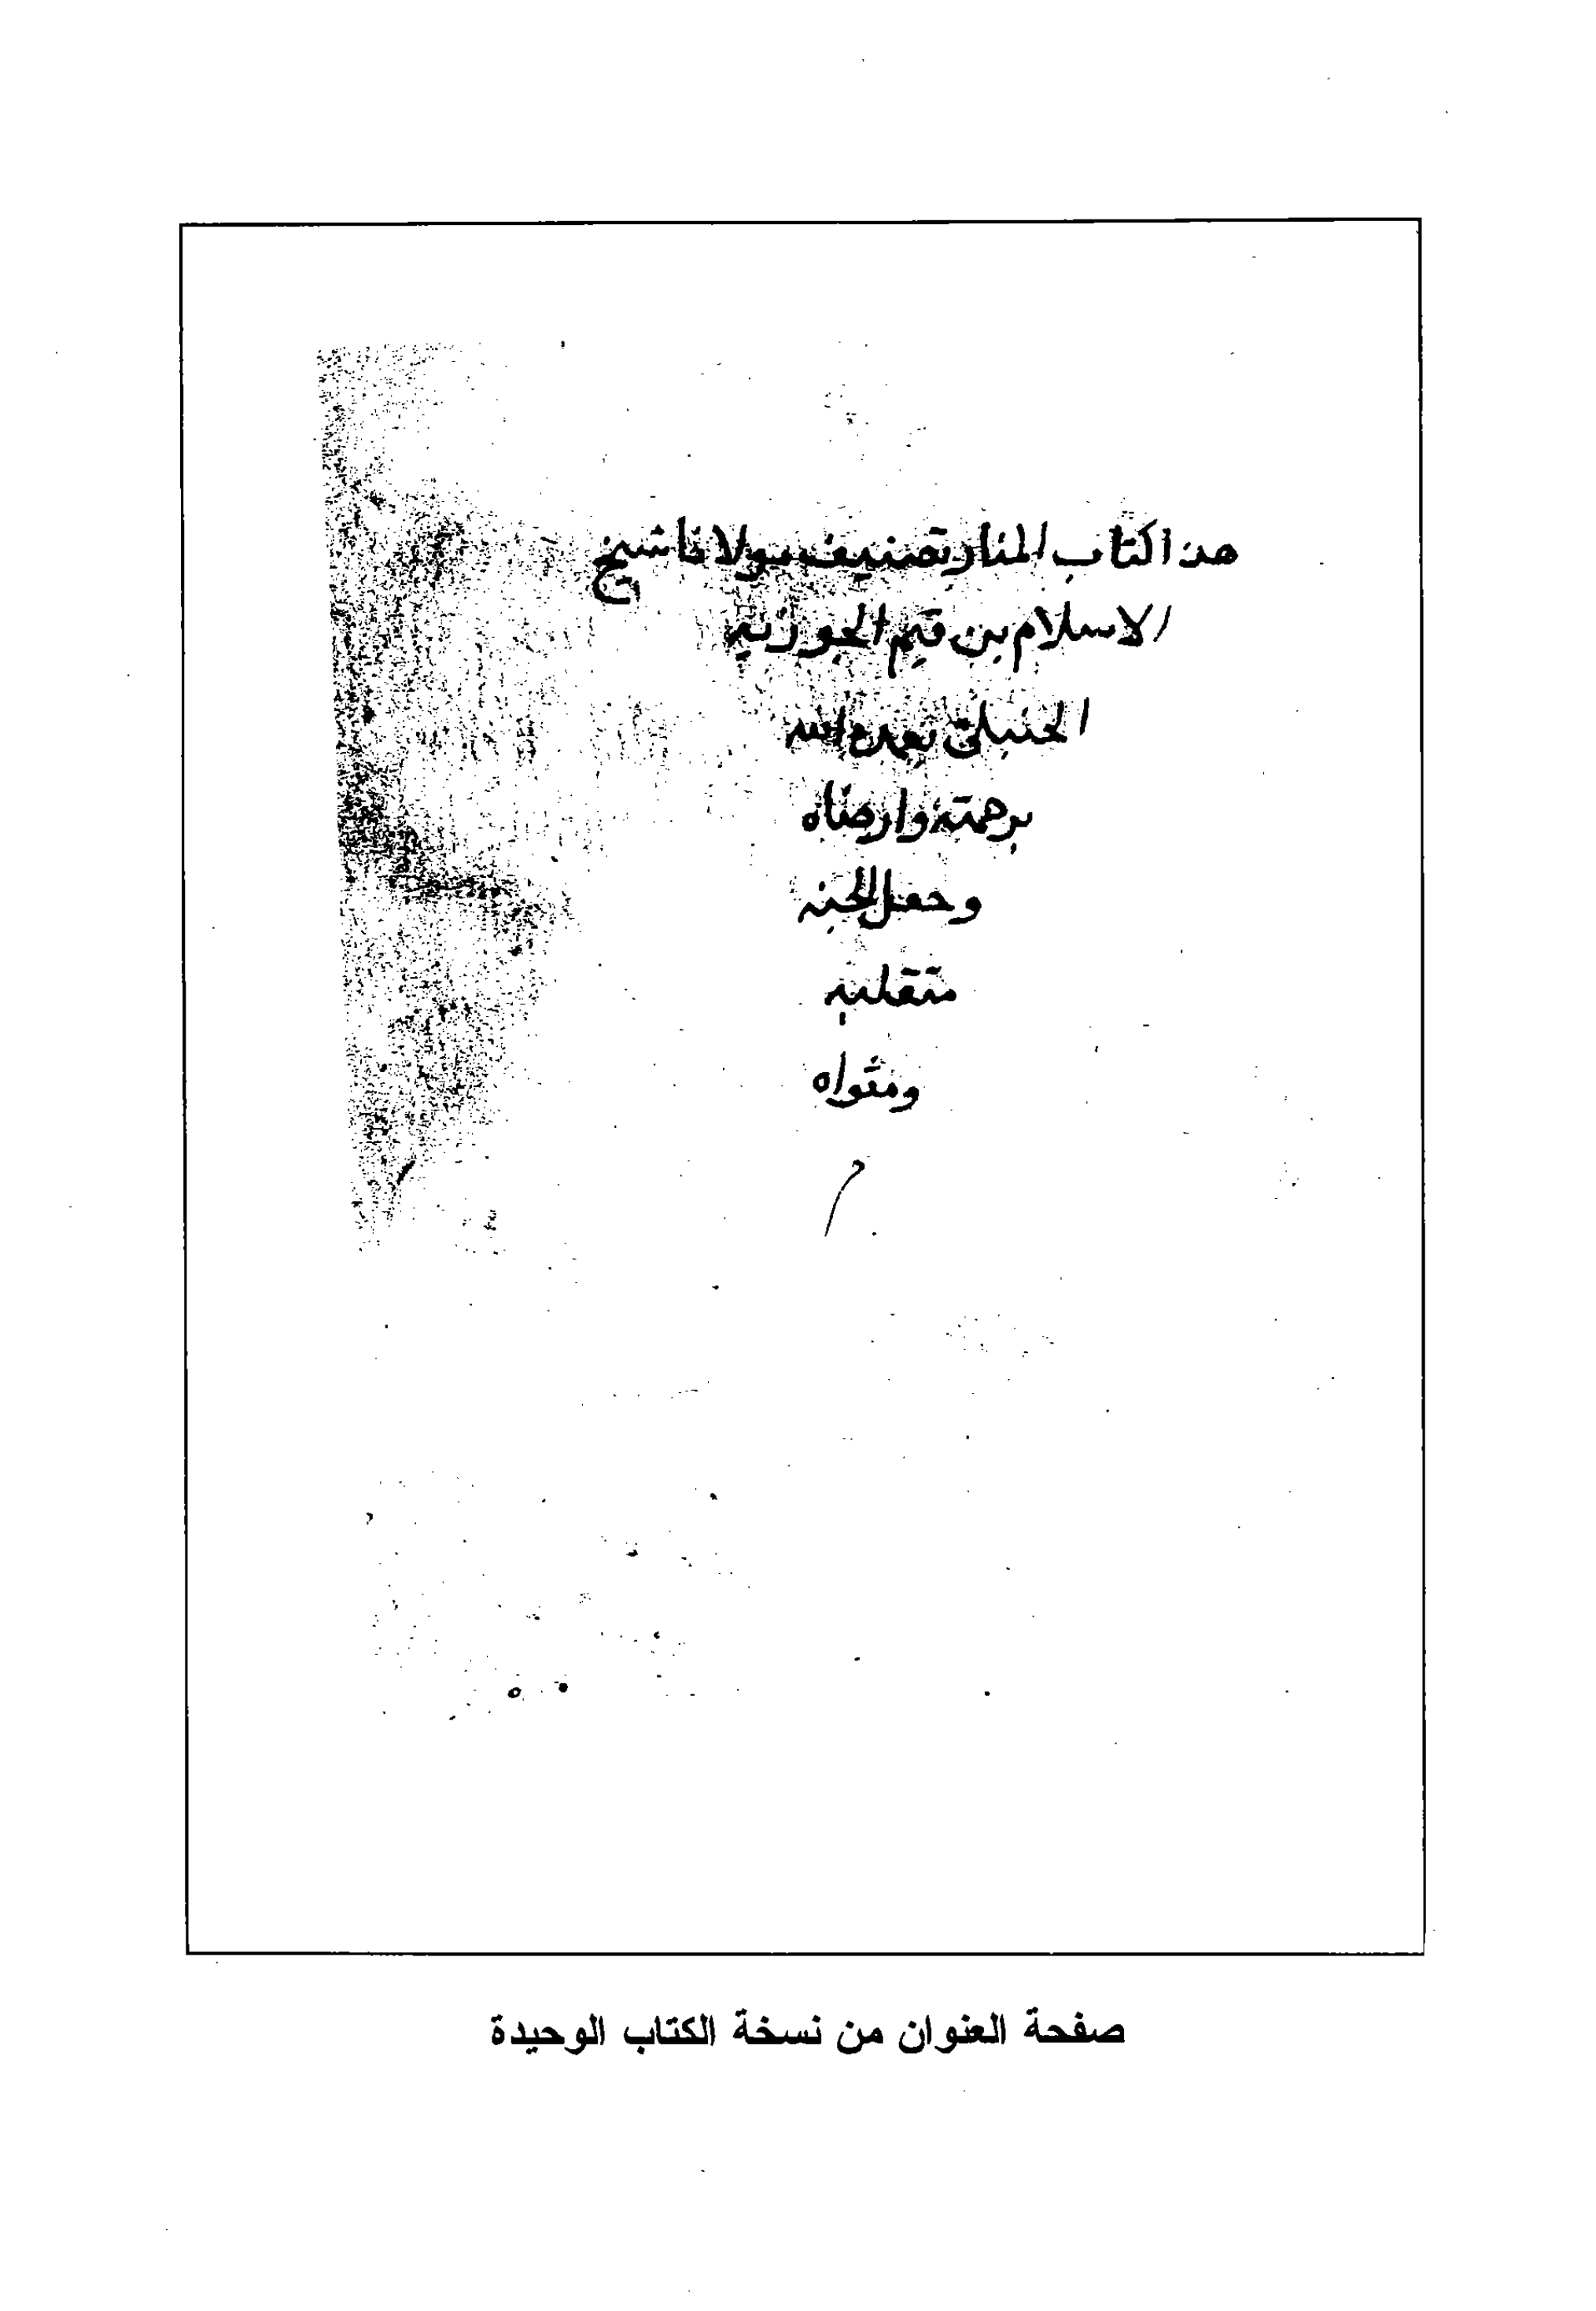 هذا كتاب المنار تصنيف مولانا شيخ
الاسلام بن قيم الجوزيه
الحنبلى تغمده الله
برحمته وارضاه
وجعل الجنه
متقلبه
ومثواه
صفحة العنوان من نسخة الكتاب الوحيدة